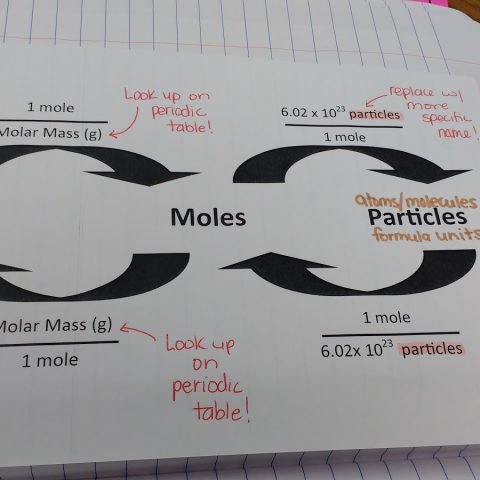 1 mole
Molar Mass (g)
Look up on
periodic
table!
6.02 x 10²³ particles
1 mole
replace w/
more
specific
name!
Moles
atoms/molecules
Particles
formula units
Molar Mass (g)
1 mole
Look up
on
periodic
table!
1 mole
6.02x 10²³ particles